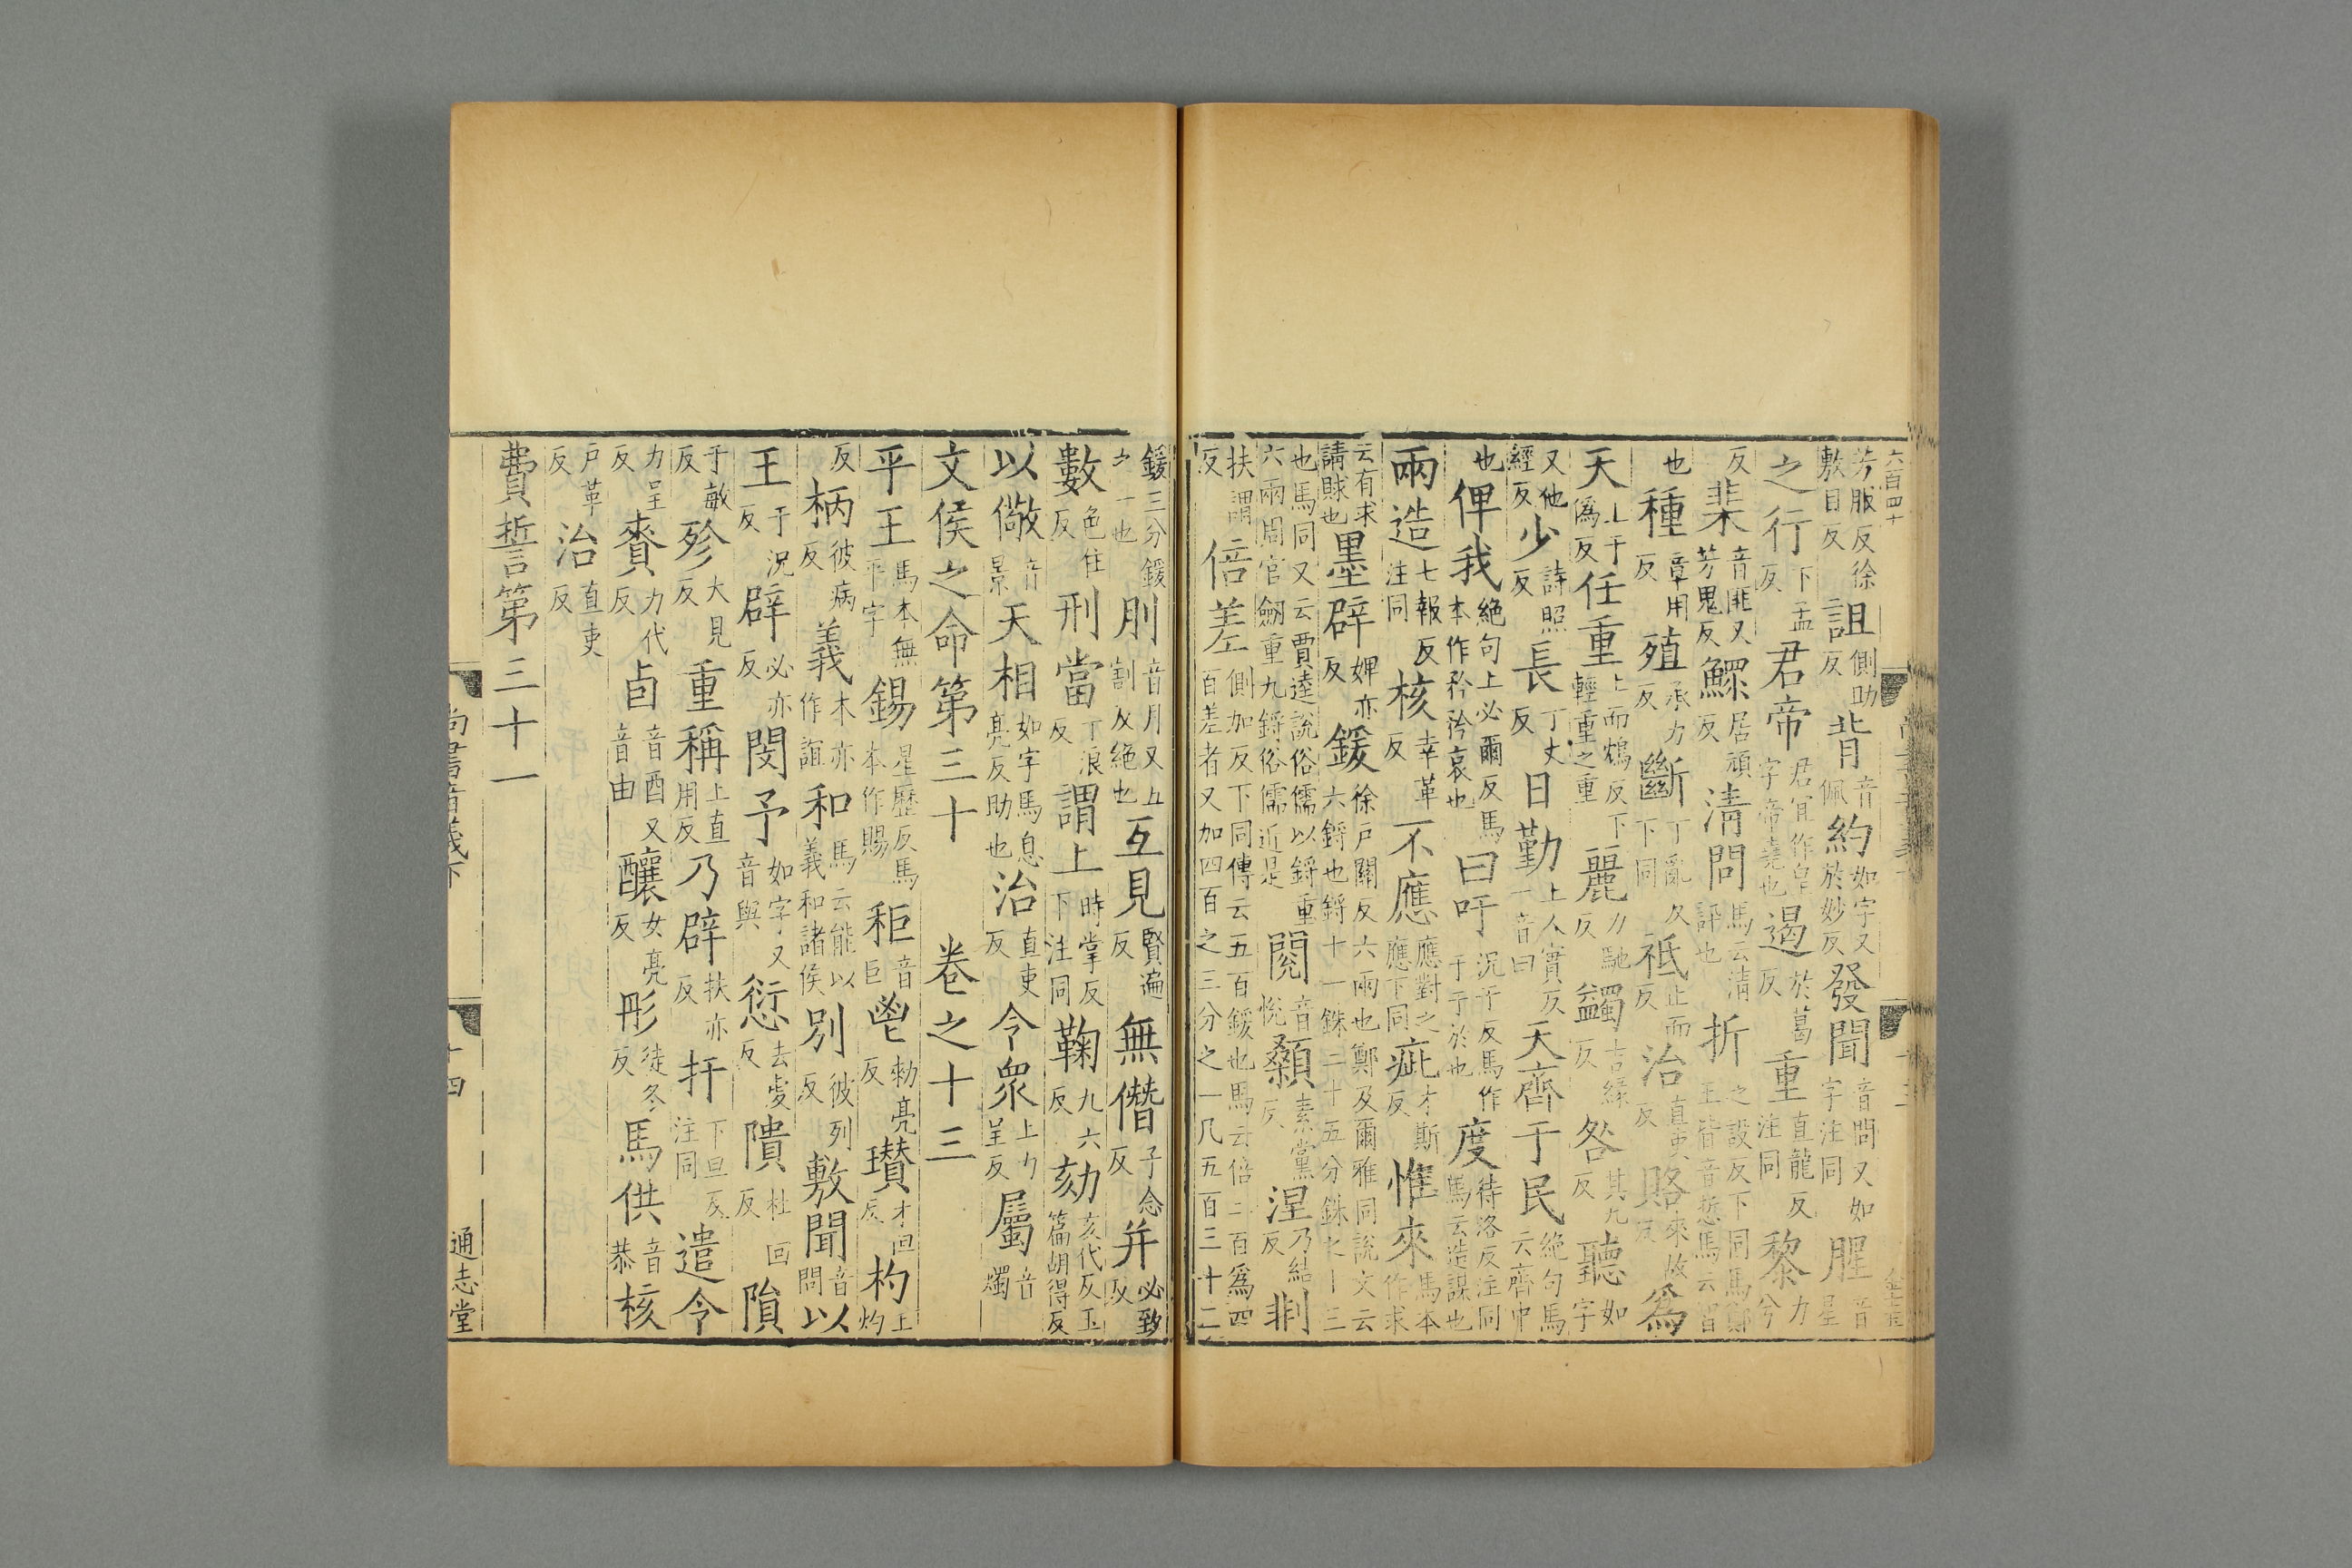 六百四十
芳服反徐敷目反詛側助反背音佩約如字又於妙反發聞音問又如字注同腥音星
之行下孟反君帝君宜作皇字帝堯也遏於葛反重直龍反注同黎力兮
反棐音匪又芳鬼反鰥居頑反清問馬云清訊也折之設反下同馬鄭王皆音悊馬云智
也種章用反殖承力反斷丁亂反下同祗止而反治直吏反賂來故反為
天上于偽反任重上而鴆反下輕重之重麗力馳反蠲吉緣反咎其九反聽如字
又他經反少詩照反長丁丈反日勤上人實反一音曰天齊于民絕句馬云齊中
也俾我絕句上必爾反馬本作矜矜哀也曰吁況于反馬作于于於也度待洛反注同馬云造謀也
兩造七報反注同核幸革反不應應對之應下同疵才斯反惟來馬本作求
云有求請賕也墨辟婢亦反鍰徐戶關反六兩也鄭及爾雅同說文云六鋝也鋝十一銖二十五分銖之十三
也馬同又云賈逵說俗儒以鋝重六兩周官劔重九鋝俗儒近是閱音悅顙素黨反涅乃結反剕
扶謂反倍差側加反下同傳云五百鍰也馬云倍二百為四百差者又加四百之三分之一凡五百三十二
鍰三分鍰之一也刖音月又五割反絕也互見賢遍反無僭子念反并必致反
數色住反刑當丁浪反謂上時掌反下注同鞠九六反劾亥代反玉篇胡得反
以儆音景天相如字馬息亮反助也治直吏反令眾上力呈反屬音燭
文侯之命第三十 卷之十三
平王馬本無平字錫星歷反馬本作賜秬音巨鬯勑亮反瓚才但反杓上灼
反柄彼病反義本亦作誼和馬云能以義和諸侯別彼列反敷聞音問以
王于況反辟必亦反閔予如字又音與愆去虔反隤杜回反隕
于敏反殄大見反重稱上直用反乃辟扶亦反扞下旦反注同遣令
力呈反賚力代反卣音酉又音由釀女亮反彤徒冬反馬供音恭核
戶革反治直吏反
費誓第三十一
尚書音義下 十四 通志堂